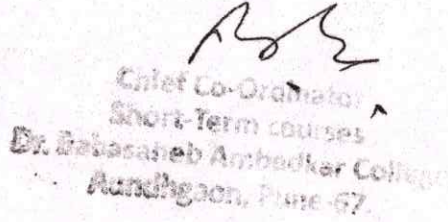 Chief Co-Ordinator
Short-Term courses
Dr. Babasaheb Ambedkar College
Aundhgaon, Pune-67.